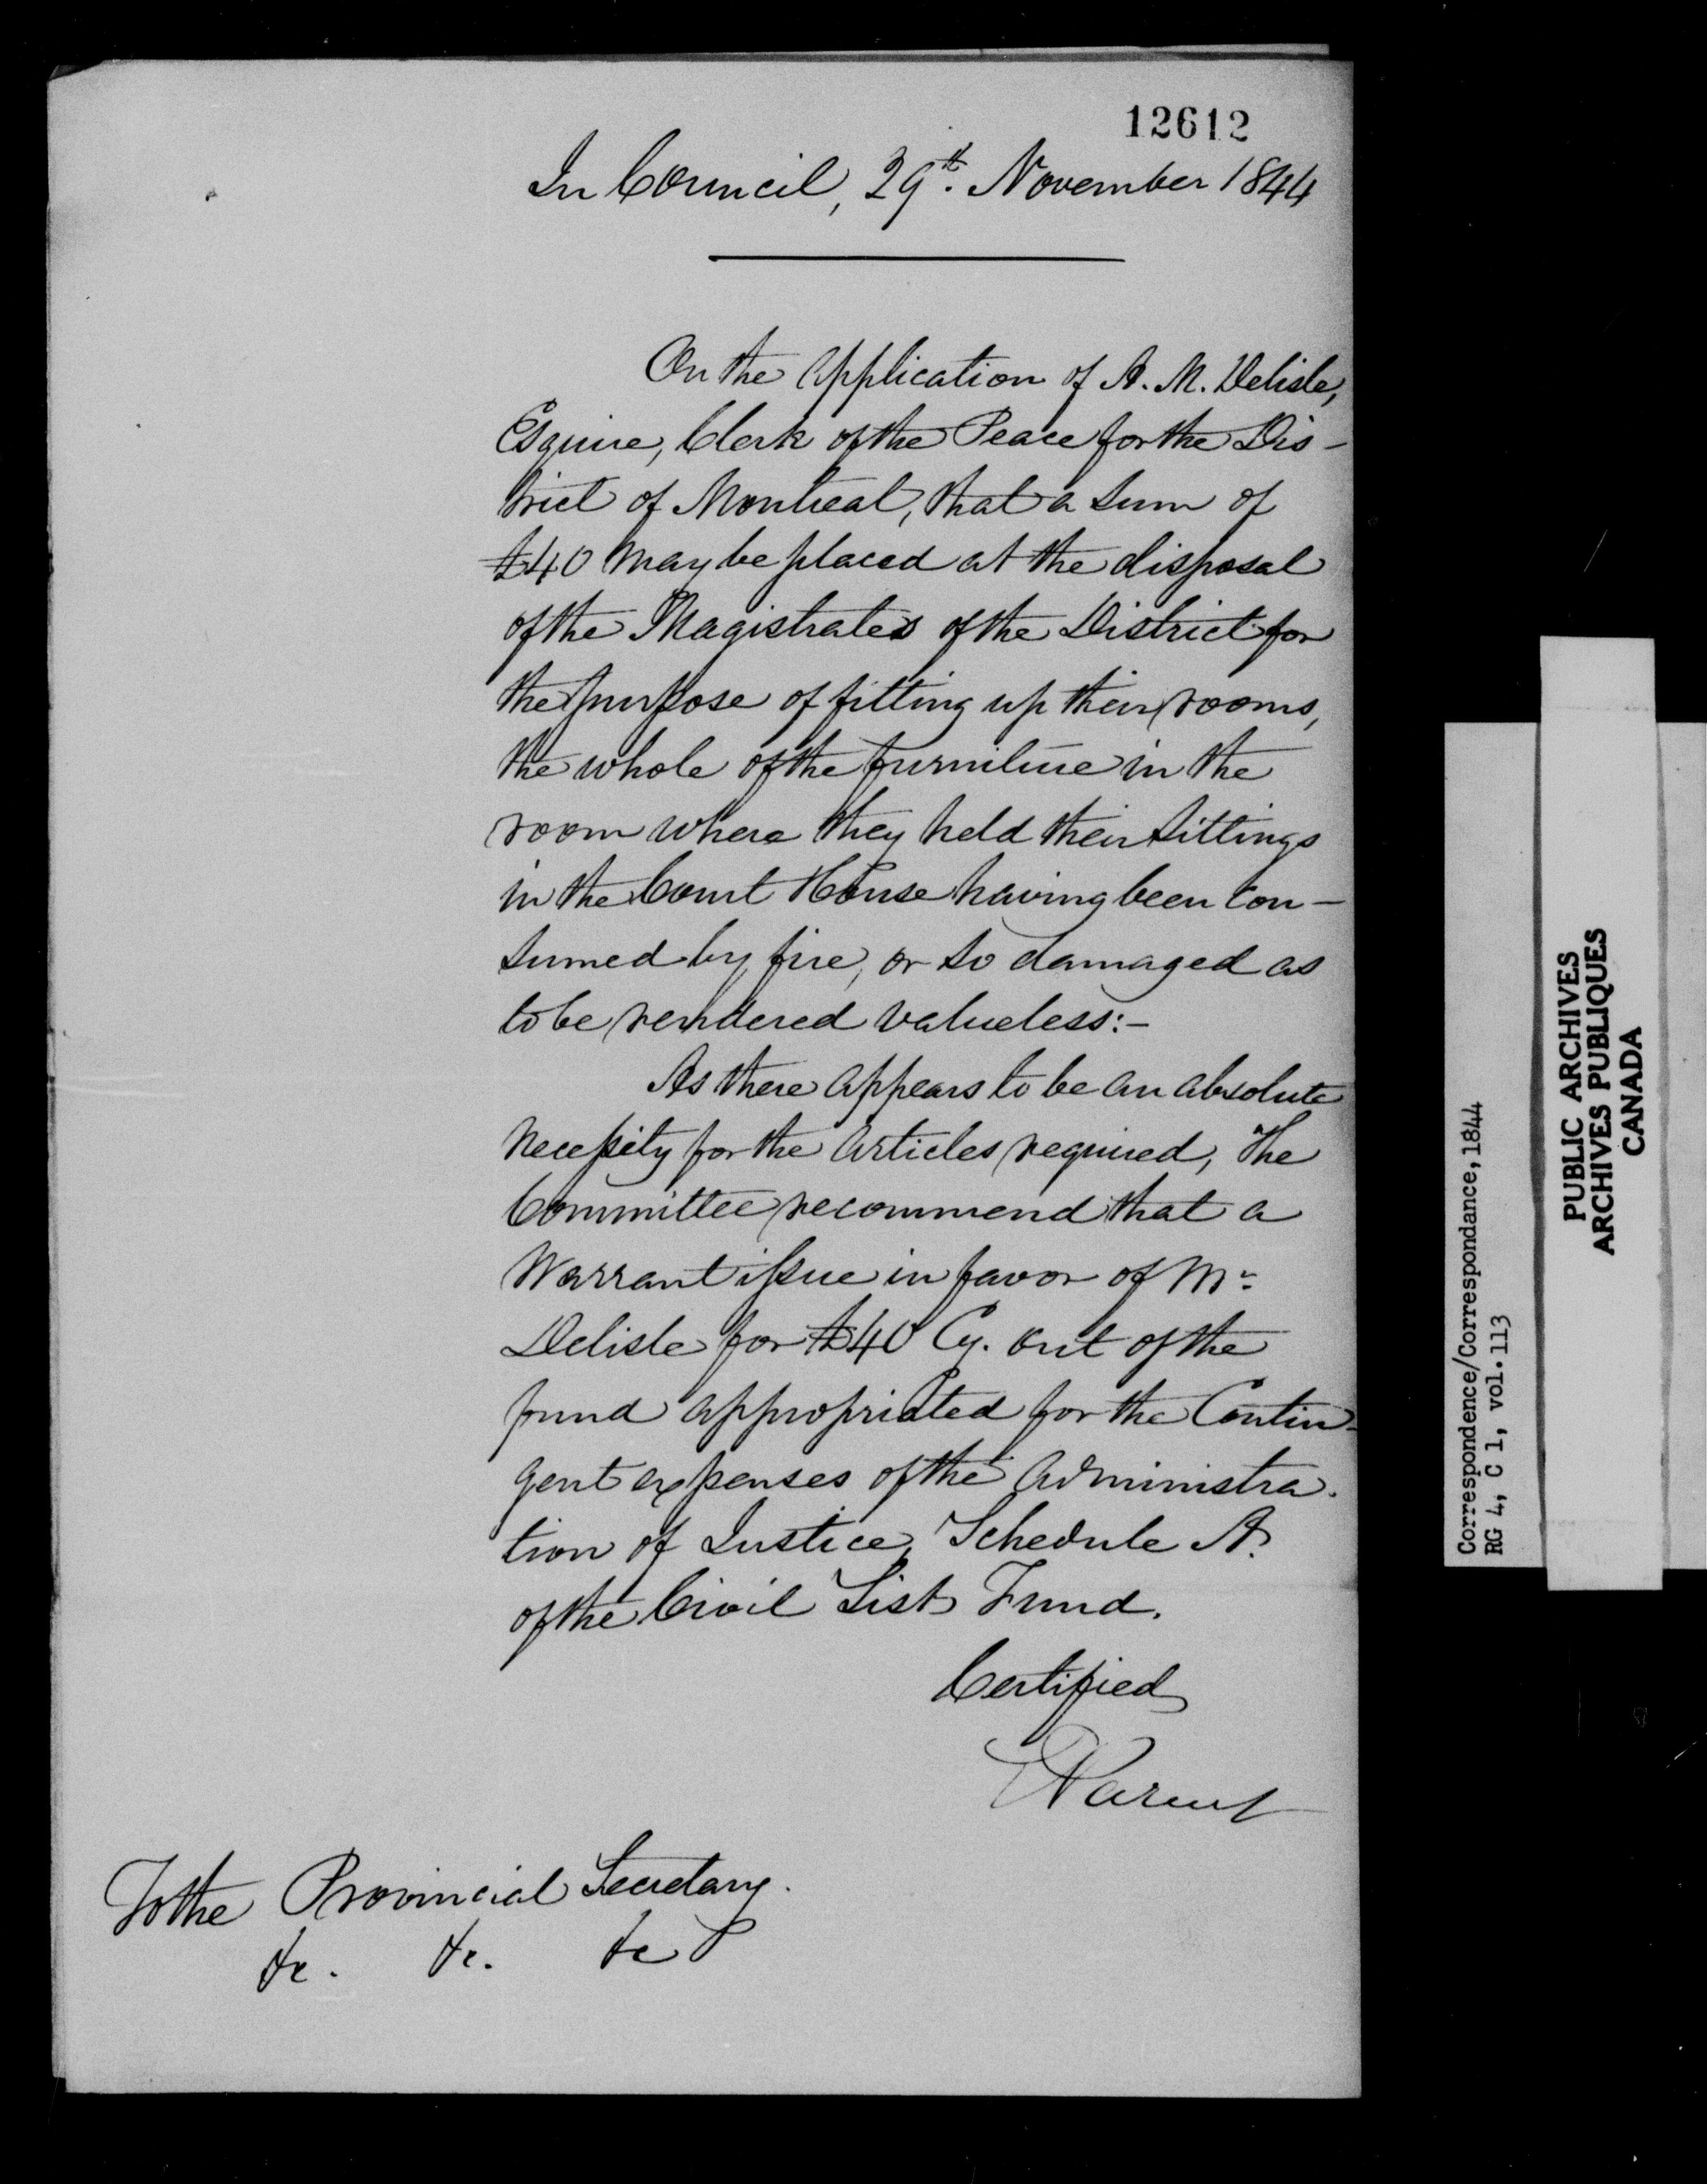 12612
In Council, 29th. November 1844
On the Application of A. M. Delisle,
Esquire, Clerk of the Peace for the Dis-
trict of Montreal, that a sum of
£40 may be placed at the disposal
of the Magistrates of the District for
the purpose of fitting up their rooms,
the whole of the furniture in the
room where they held their sittings
in the Court House having been con-
sumed by fire, or so damaged as
to be rendered valueless:-
As there appears to be an absolute
necessity for the articles required, the
Committee recommend that a
Warrant issue in favor of Mr.
Delisle for £40 Cy. out of the
fund appropriated for the Contin-
gent expenses of the Administra-
tion of Justice, Schedule A.
of the Civil List Fund.
Certified
E Parent
To the Provincial Secretary.
&c. &c. &c
Correspondence/Correspondance, 1844
RG 4, C 1, vol. 113
PUBLIC ARCHIVES
ARCHIVES PUBLIQUES
CANADA